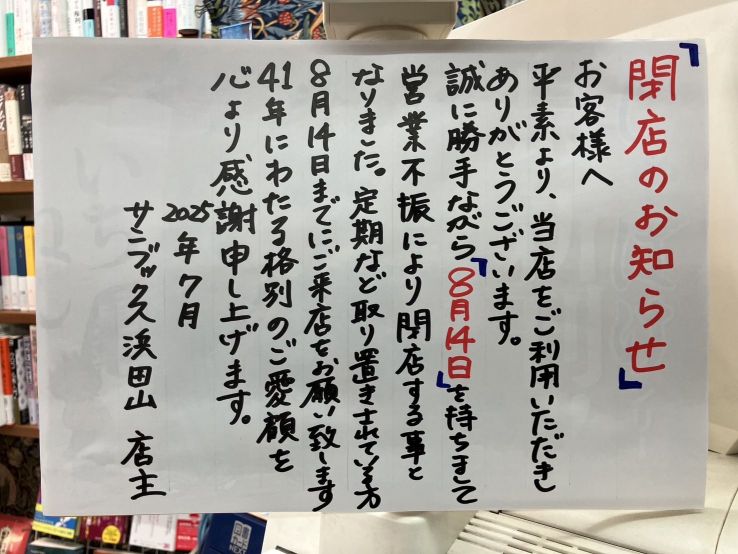 「閉店のお知らせ」
お客様へ
平素より、当店をご利用いただき
ありがとうございます。
誠に勝手ながら「8月14日」を持ちまして
営業不振により閉店する事と
なりました。定期など取り置きされている方
8月14日までにご来店をお願い致します
41年にわたる格別のご愛顧を
心より感謝申し上げます。
2025年7月
サンブックス浜田山 店主